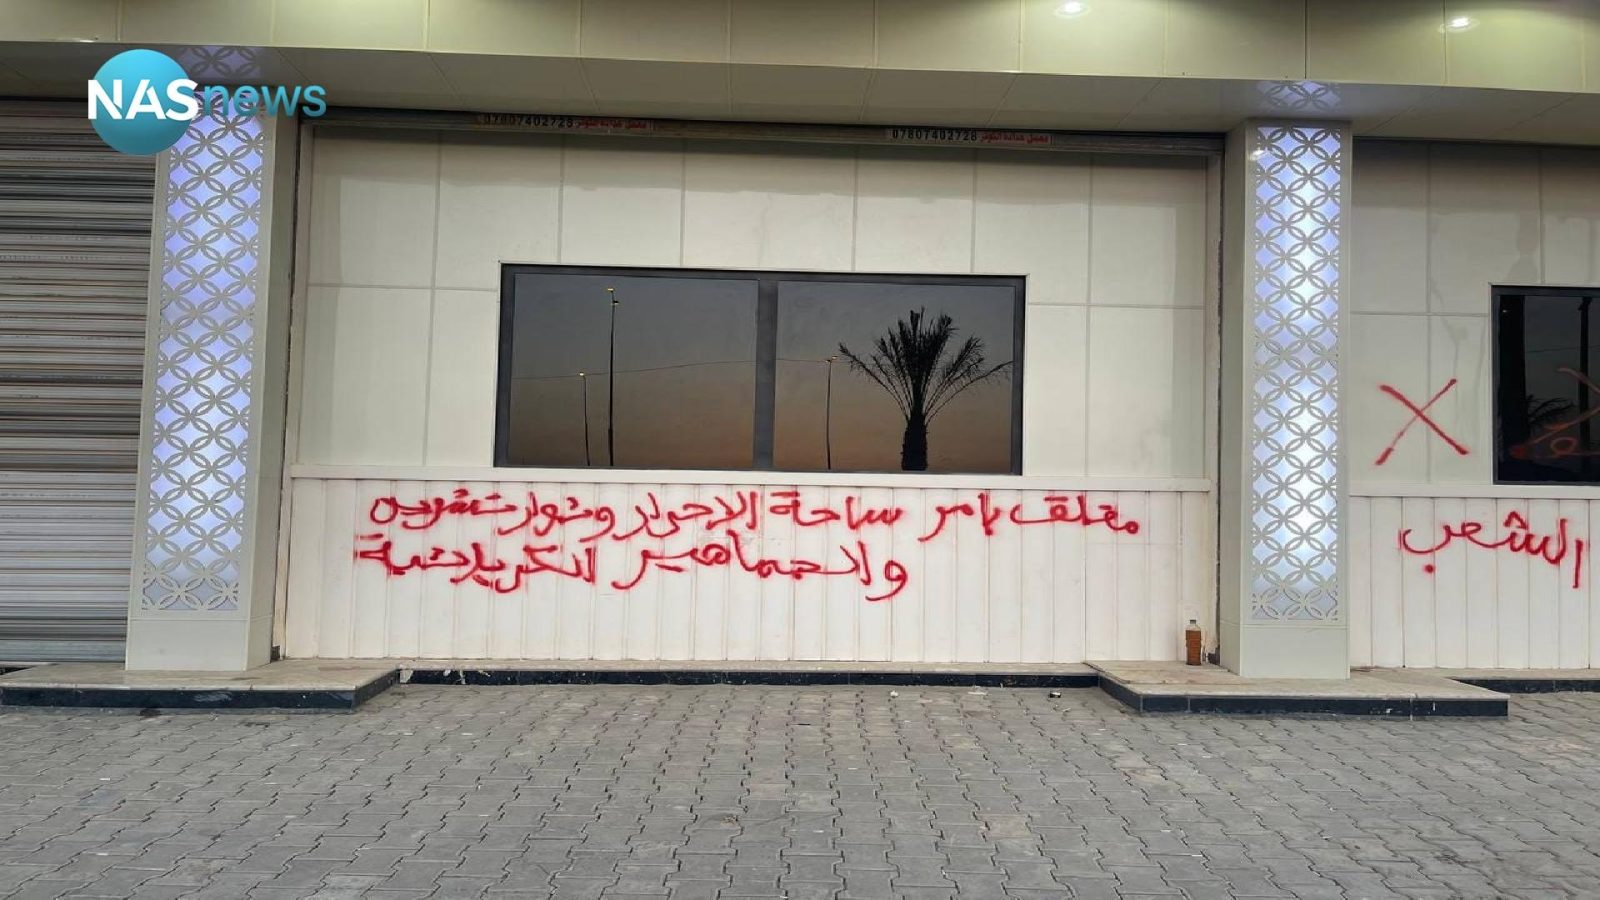 NASnews
07807402728
07807402728
مغلق بامر ساحة الاحرار وثوار تشرين
والجماهير الكربلائية
الشعب